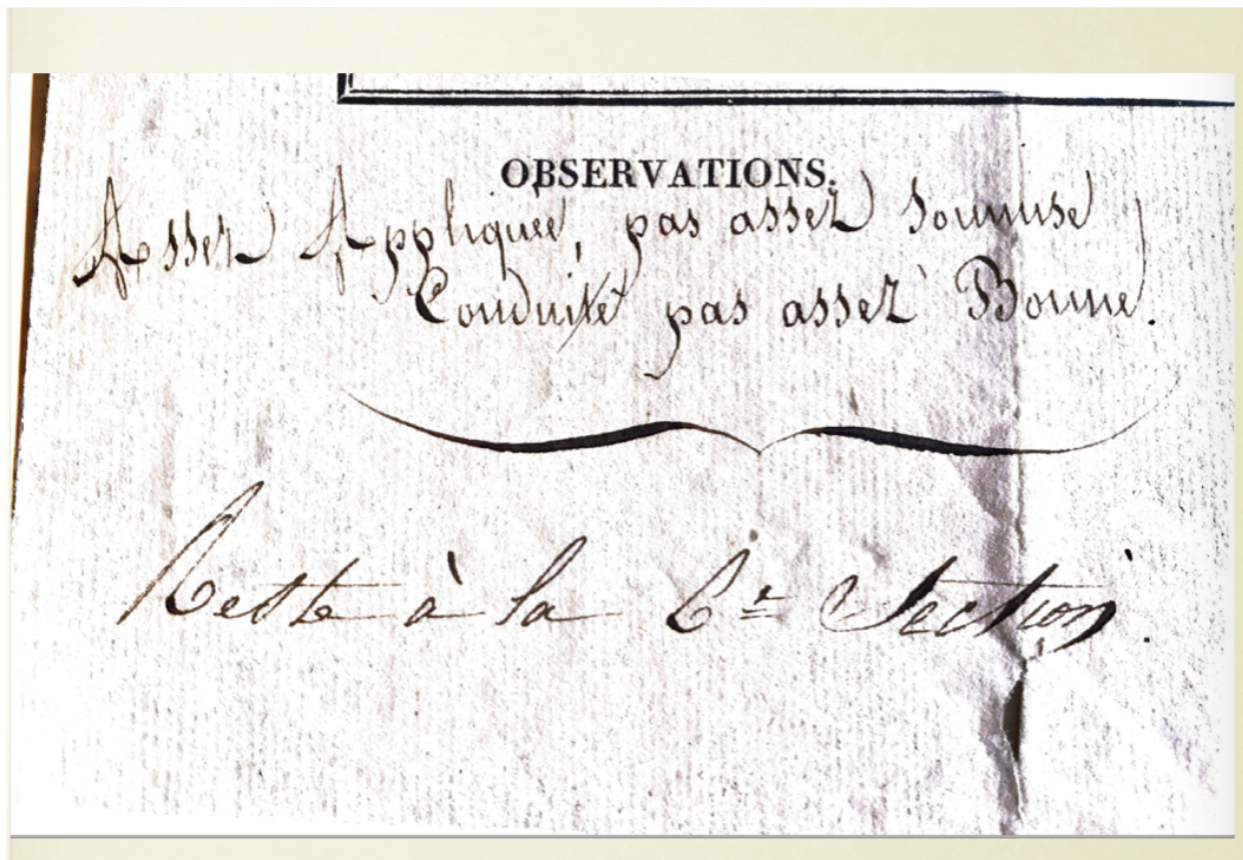 OBSERVATIONS.
Assez Appliquée, pas assez soumise,
Conduite pas assez Bonne.
Reste à la 6e Section.